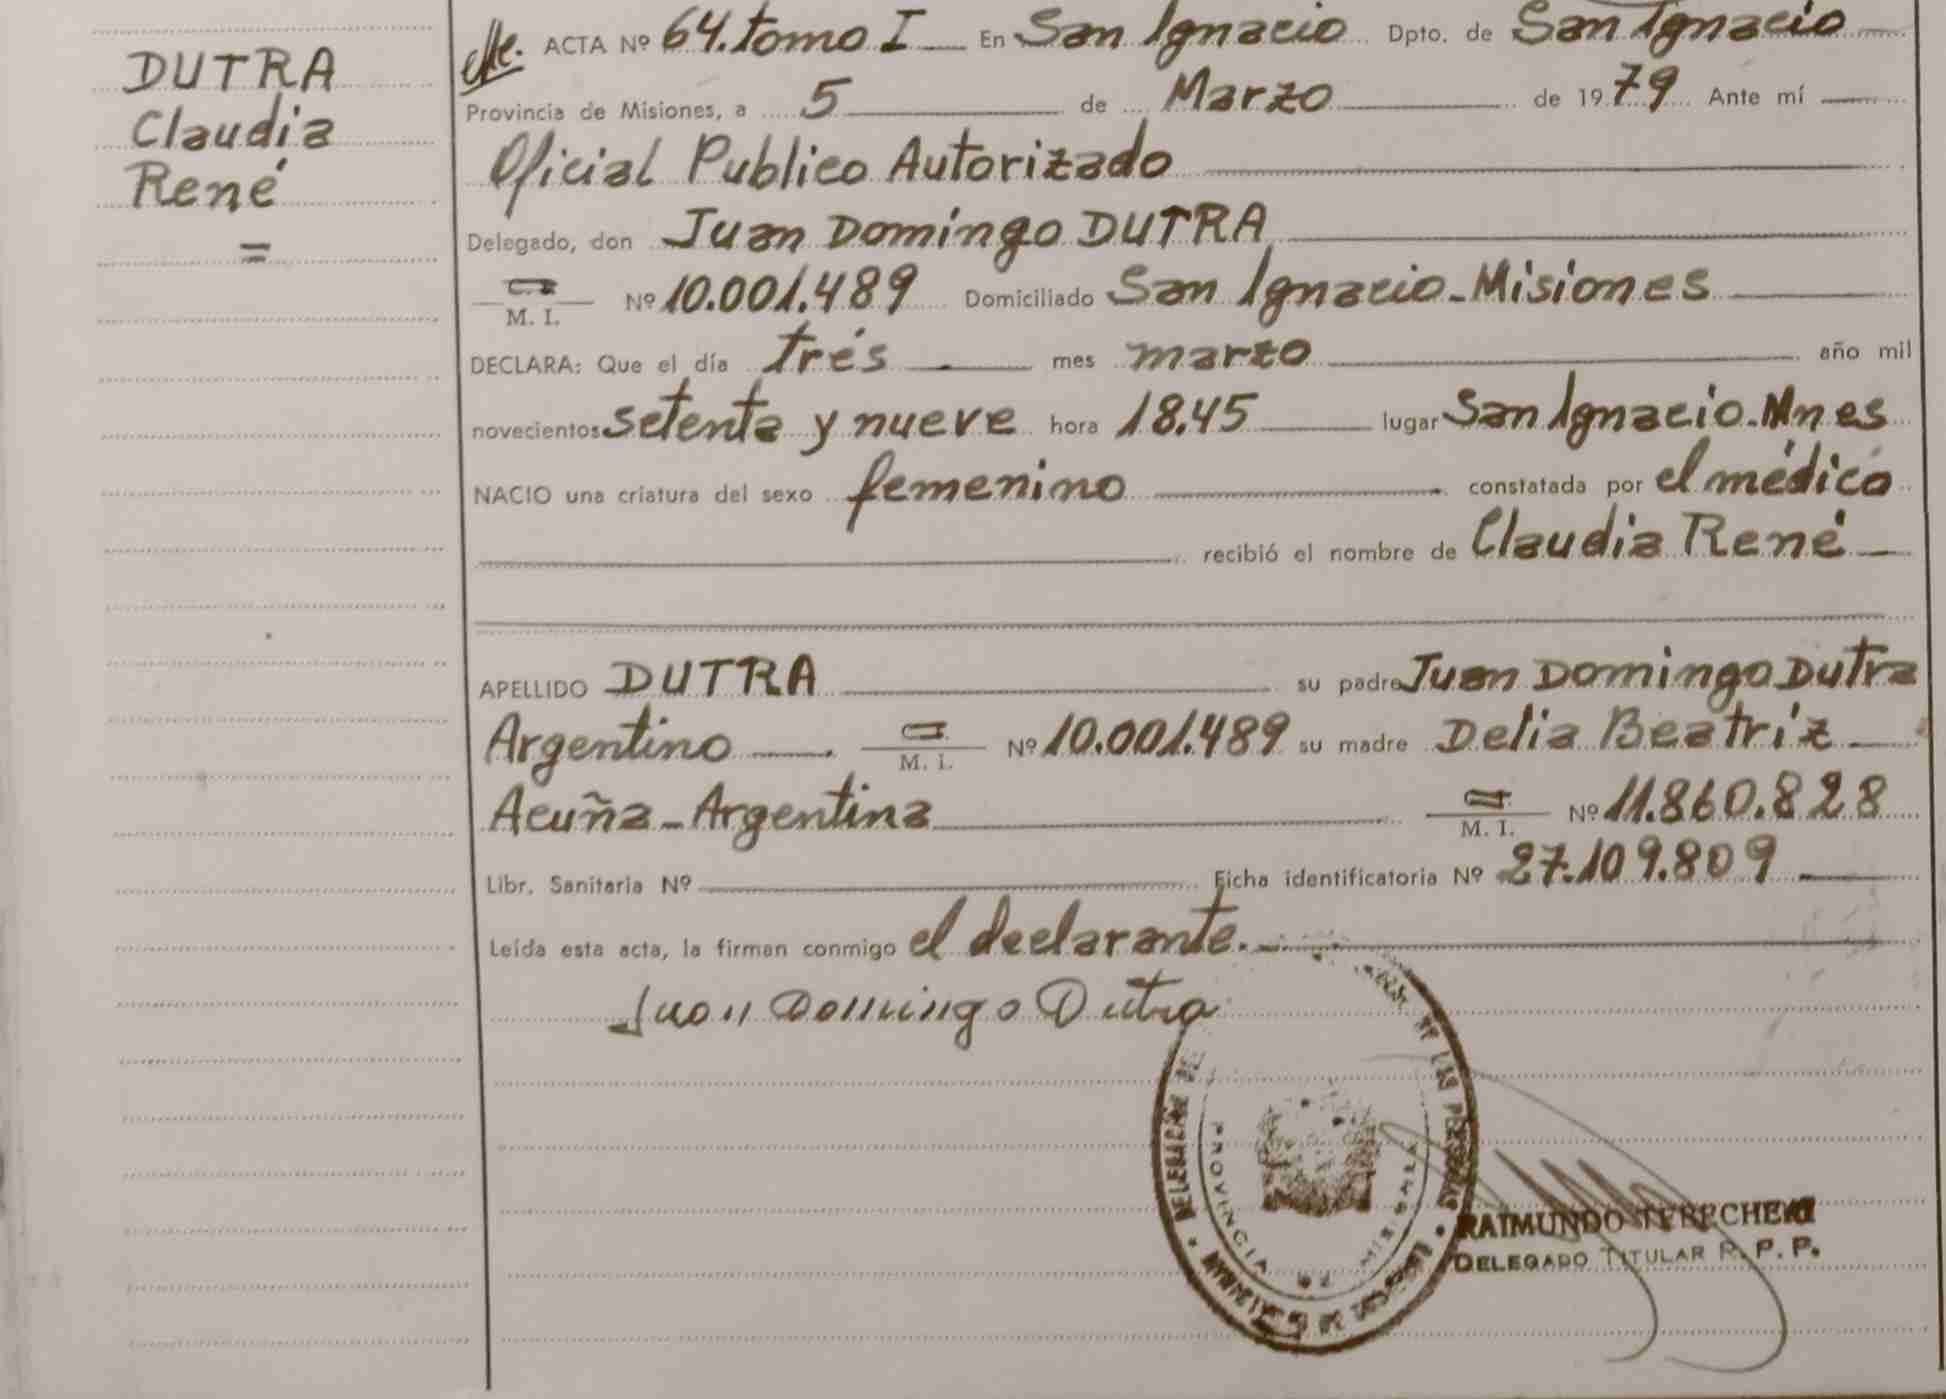 DUTRA
Claudia
René
=
ACTA Nº 64. tomo I En San Ignacio Dpto. de San Ignacio
Provincia de Misiones, a 5 de Marzo de 1979 Ante mí
Oficial Publico Autorizado
Delegado, don Juan Domingo DUTRA
M. I. Nº 10.001.489 Domiciliado San Ignacio - Misiones
DECLARA: Que el día trés mes marzo año mil
novecientos setenta y nueve hora 18.45 lugar San Ignacio. Mnes
NACIO una criatura del sexo femenino constatada por el médico
recibió el nombre de Claudia René
APELLIDO DUTRA su padre Juan Domingo Dutra
Argentino M. I. Nº 10.001.489 su madre Delia Beatriz
Acuña - Argentina M. I. Nº 11.860.828
Libr. Sanitaria Nº Ficha identificatoria Nº 27.109.809
Leída esta acta, la firman conmigo el declarante.
Juan Domingo Dutra
DELEGACIÓN DE DE LAS PERSONAS
PROVINCIA DE MISIONES
RAIMUNDO
DELEGADO TITULAR R. P. P.